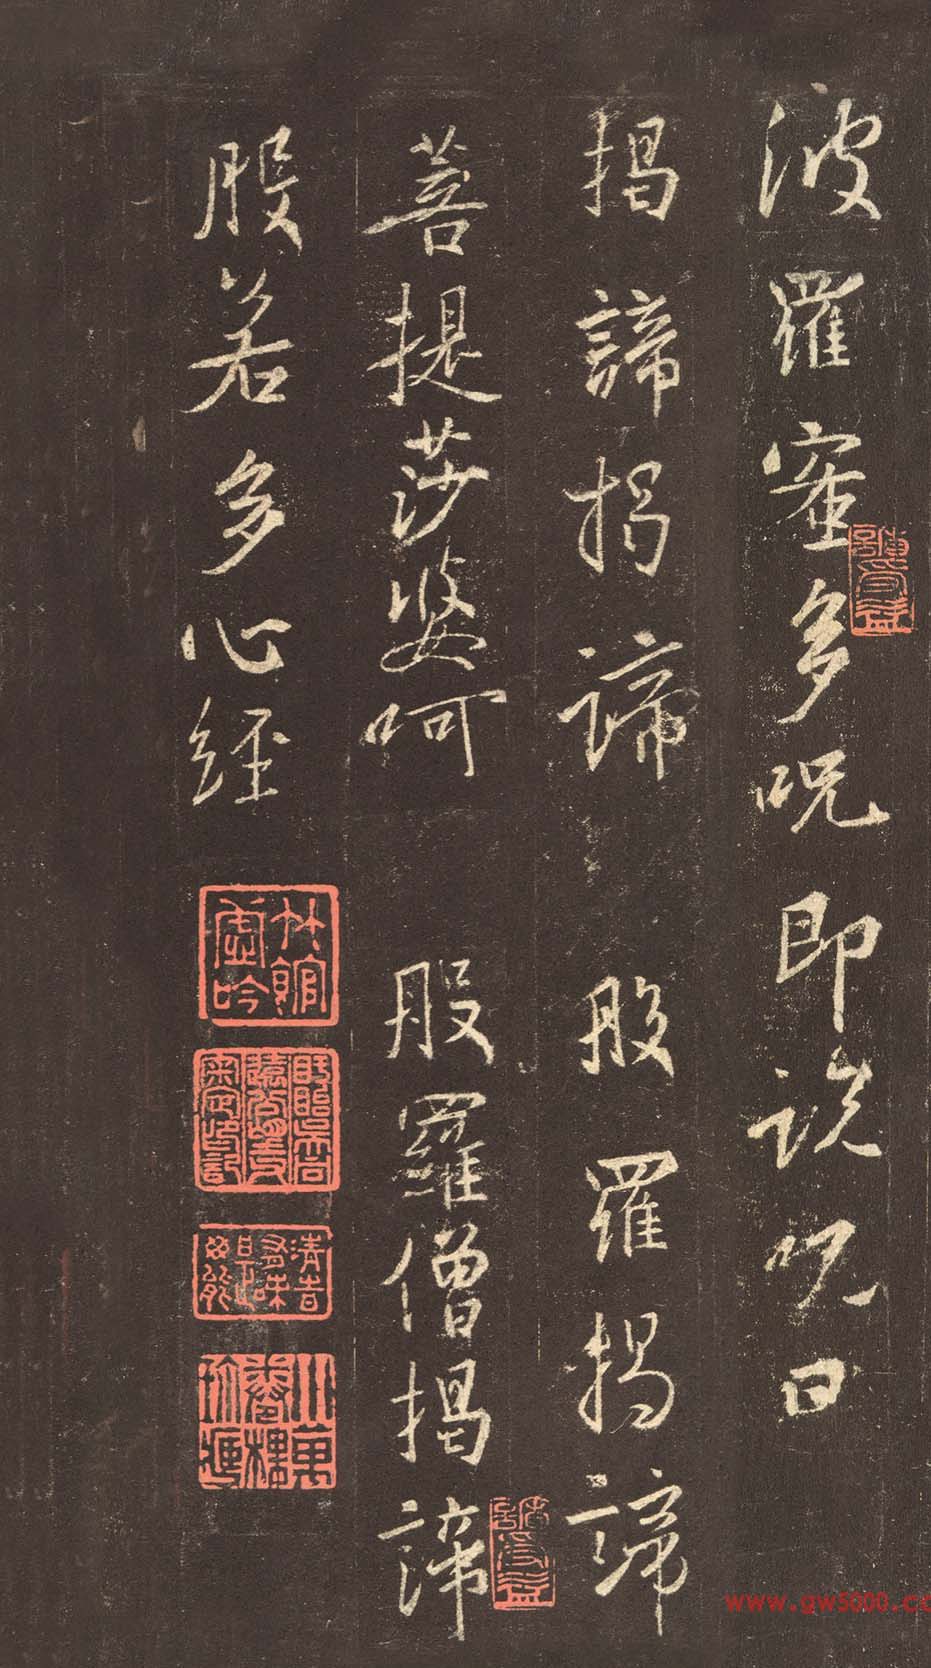 波羅蜜多呪即說呪曰
揭諦揭諦 般羅揭諦
菩提莎婆呵 般羅僧揭諦
般若多心經
竹館虛吟
www.gw5000.co